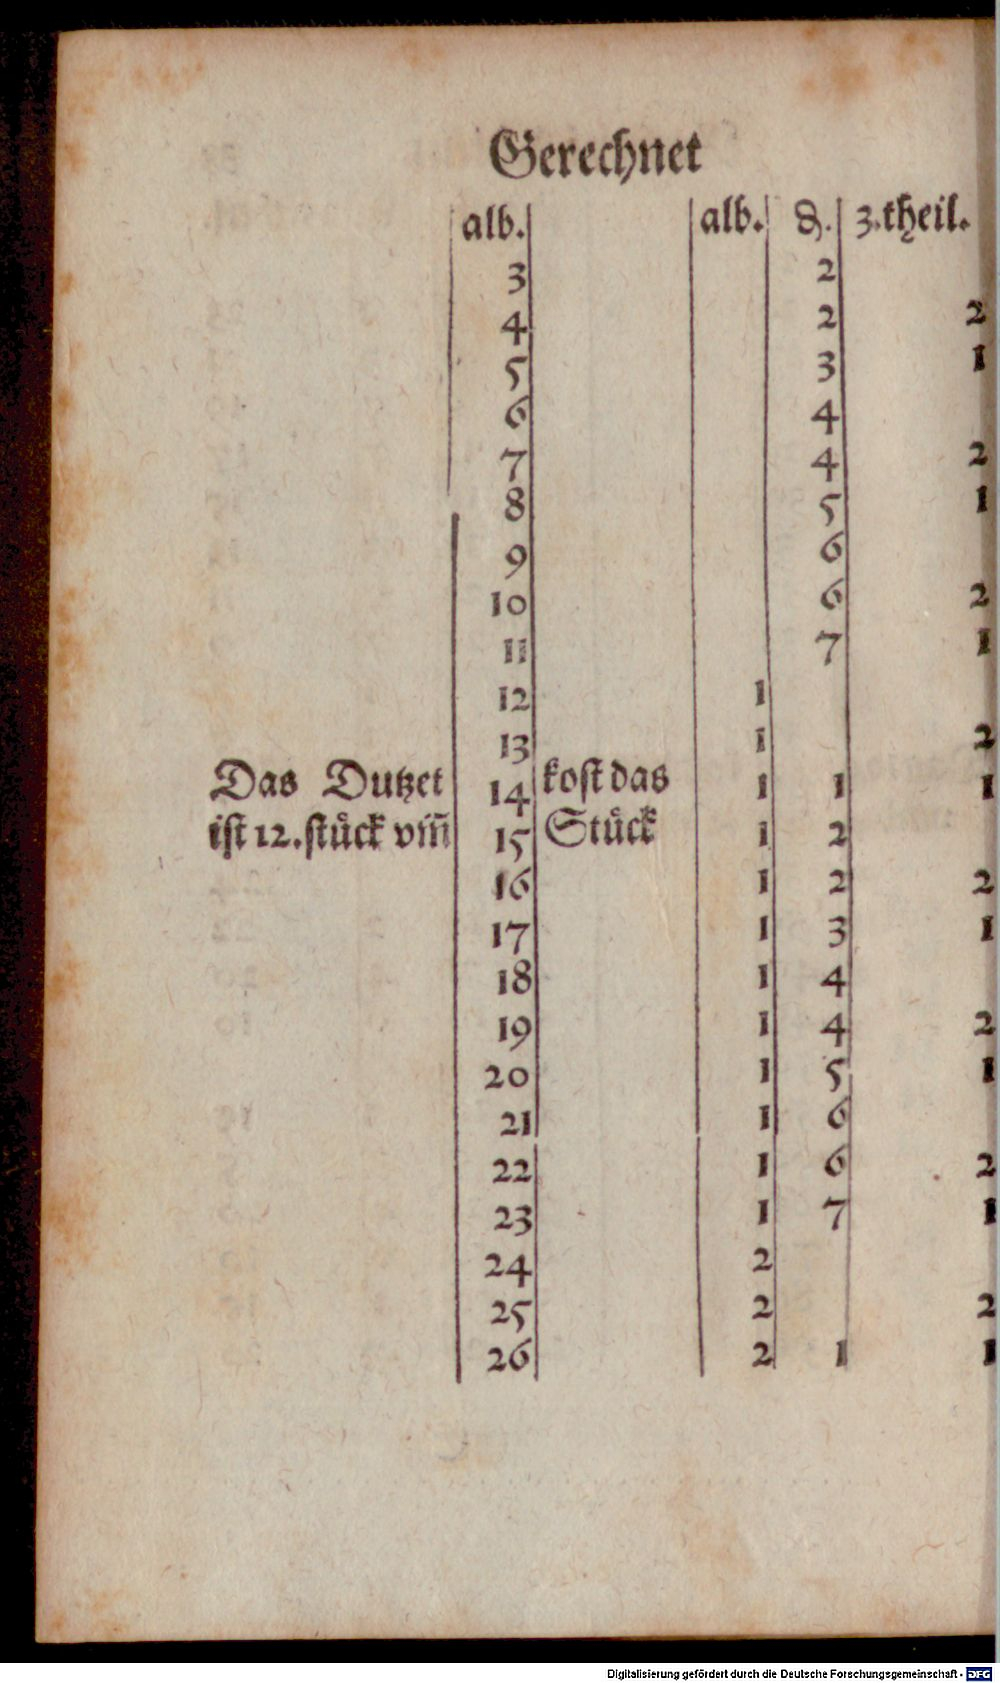 Gerechnet
alb. alb. ₰. 3.theil.
3 2
4 2 2
5 3 1
6 4
7 4 2
8 5 1
9 6
10 6 2
11 7 1
12 1
13 1 2
Das Dutzet 14 kost das 1 1 1
ist 12.stůck vm̃ 15 Stůck 1 2
16 1 2 2
17 1 3 1
18 1 4
19 1 4 2
20 1 5 1
21 1 6
22 1 6 2
23 1 7 1
24 2
25 2 2
26 2 1 1
Digitalisierung gefördert durch die Deutsche Forschungsgemeinschaft - DFG